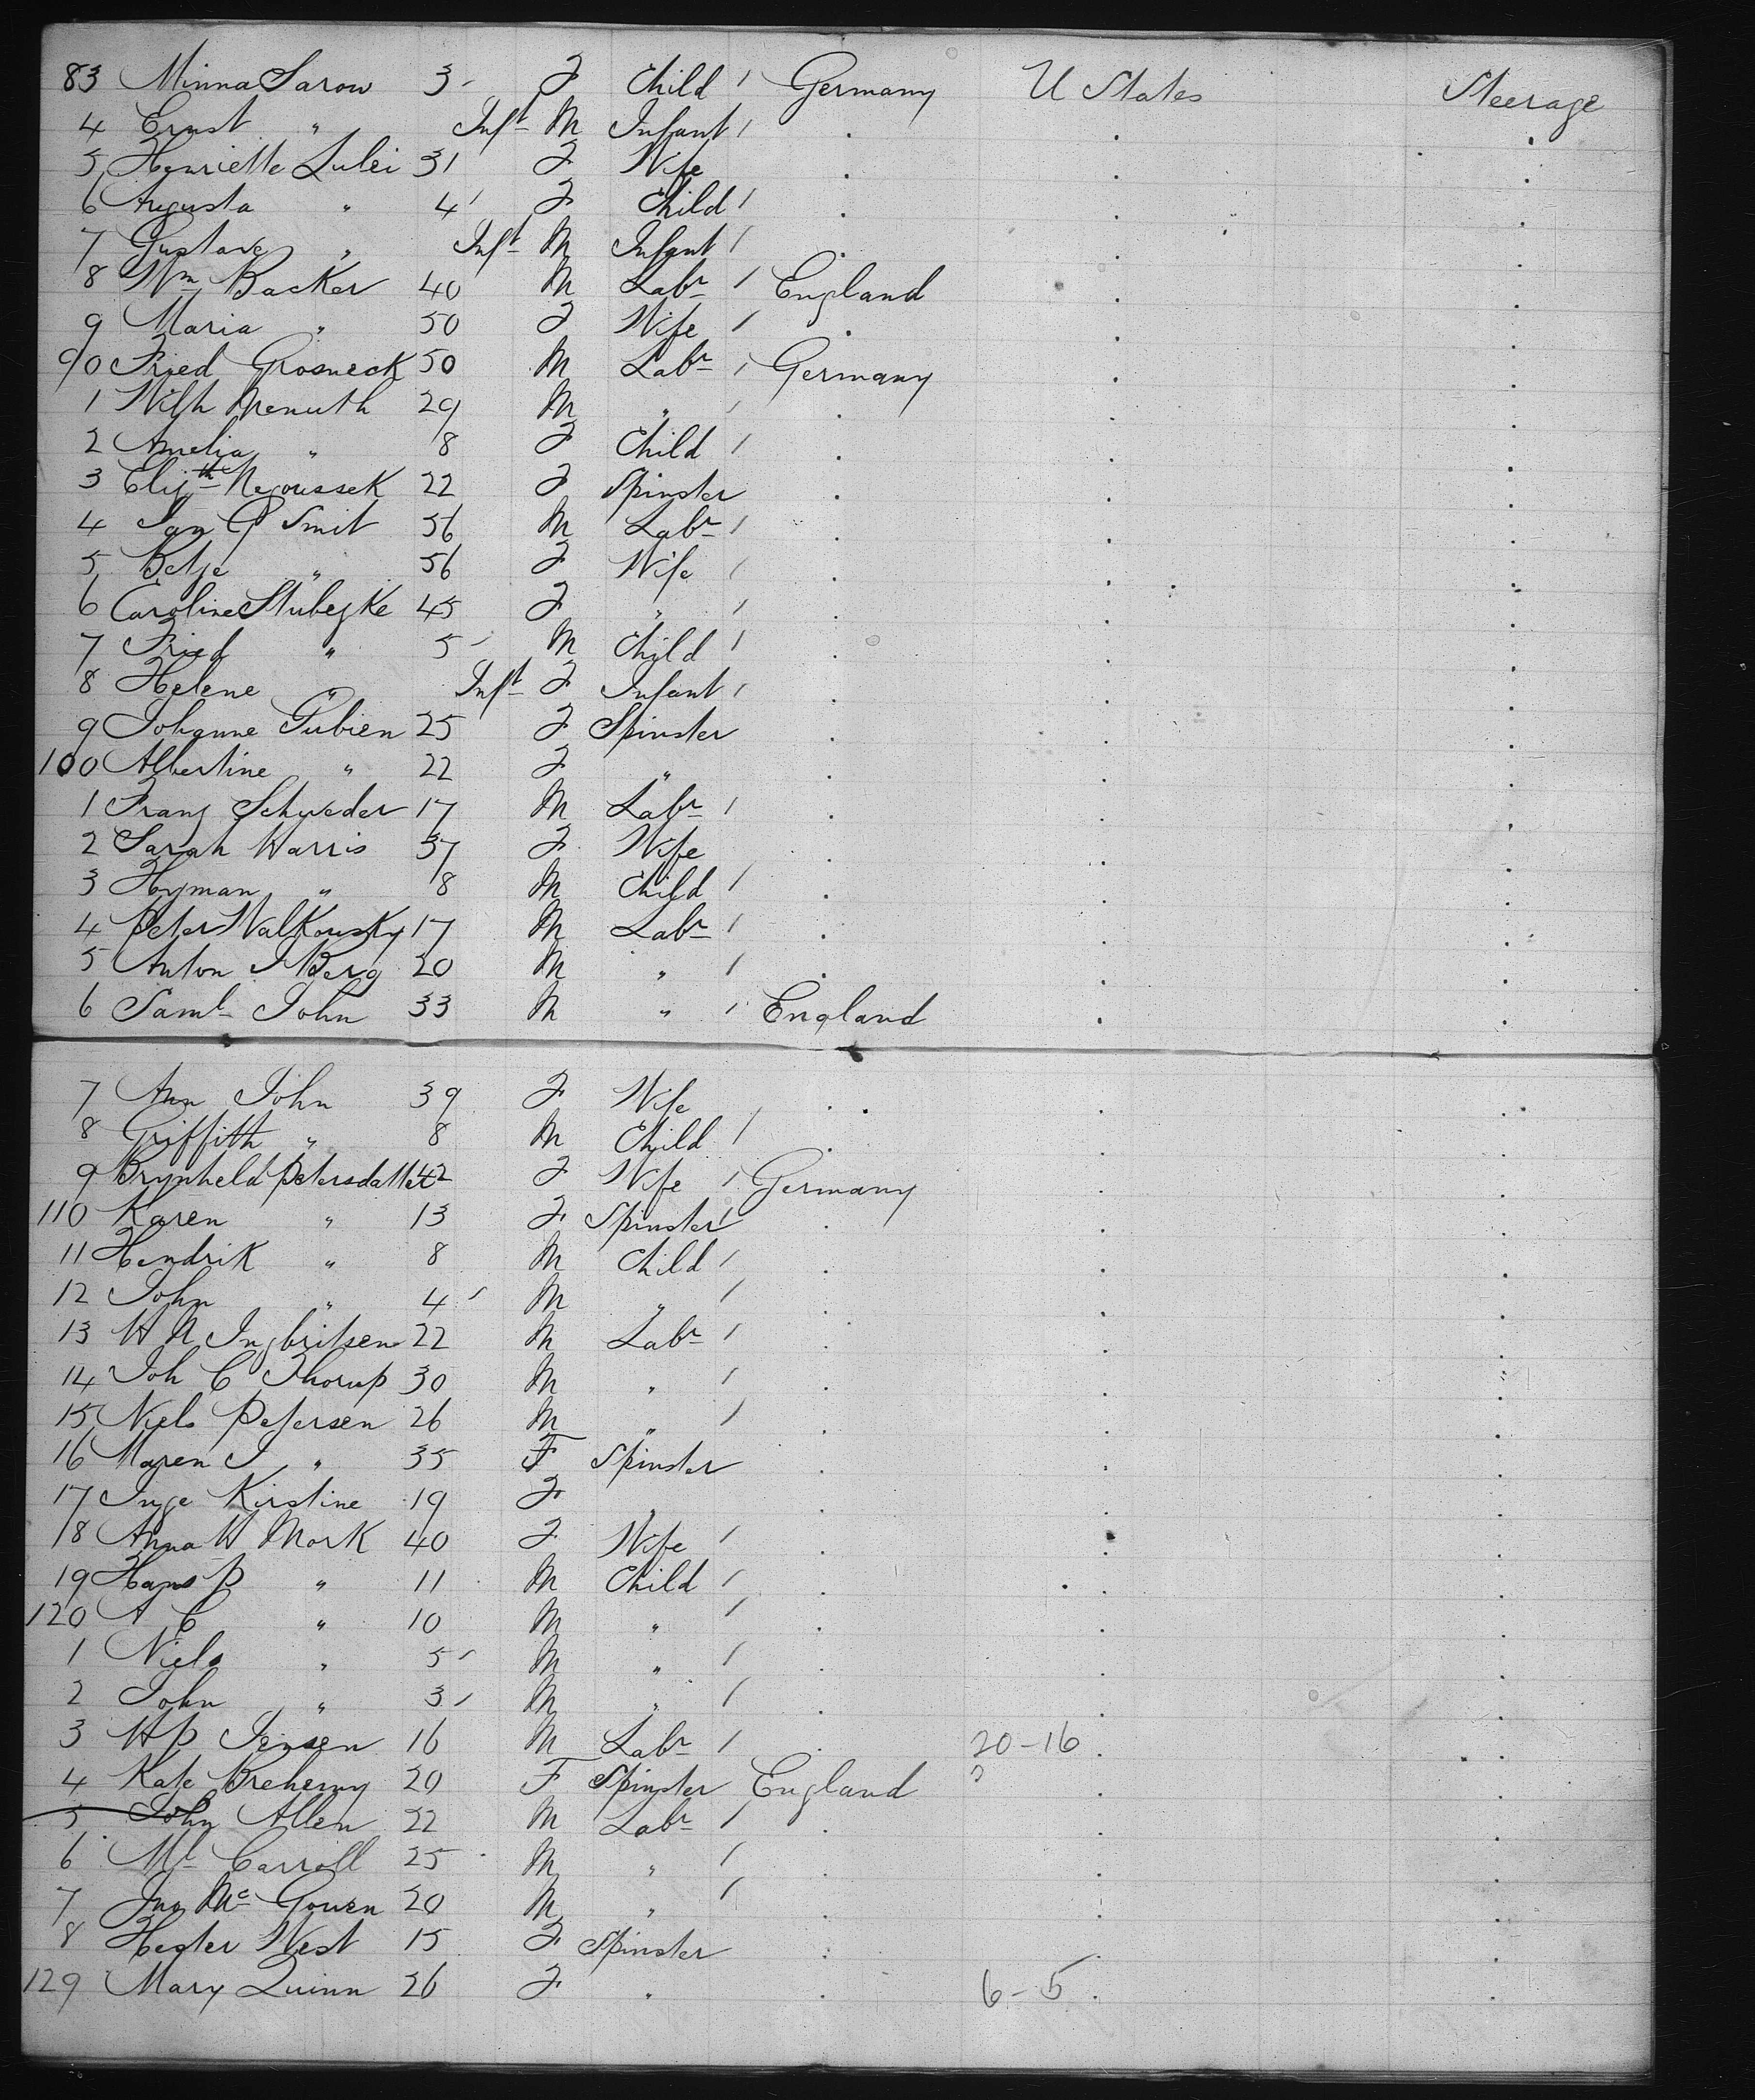 83 Minna Sarow 3 F Child Germany U States Steerage
4 Ernst " Inft M Infant
5 Henriette Lulei 31 F Wife
6 Augusta " 4 F Child
7 Gustave " Inft M Infant
8 Wm Backer 40 M Labr England
9 Maria " 50 F Wife
90 Fried Grosneck 50 M Labr Germany
1 Wilh 29 M "
2 Amelia " 8 F Child
3 Elizth 22 F Spinster
4 Jan G Smit 56 M Labr
5 Betje " 56 F Wife
6 Caroline Stubezke 45 F "
7 Fried " 5 M Child
8 Helene " Inft F Infant
9 Johanne Gubien 25 F Spinster
100 Albertine " 22 F "
1 Franz Schweder 17 M Labr
2 Sarah Harris 37 F Wife
3 Hyman " 8 M Child
4 Peter Walkowsky 17 M Labr
5 Anton J Berg 20 M "
6 Saml John 33 M " England
7 Ann John 39 F Wife
8 Griffith " 8 M Child
9 Brynheld Petersdatter 42 F Wife Germany
110 Karen " 13 F Spinster
11 Hendrik " 8 M Child
12 John " 4 M "
13 H N Ingbritsen 22 M Labr
14 Joh C Thorup 30 M "
15 Niels Petersen 26 M "
16 Maren J " 35 F Spinster
17 Inge Kirstine 19 F "
18 Anna H Mork 40 F Wife
19 Hans P " 11 M Child
120 A C " 10 M "
1 Niels " 5 M "
2 John " 3 M "
3 H P Jensen 16 M Labr 20-16
4 Kate Breheny 20 F Spinster England
5 John Allen 22 M Labr
6 Ml Carroll 25 M "
7 Jno McGowen 20 M "
8 Hester West 15 F Spinster
129 Mary Quinn 26 F " 6-5